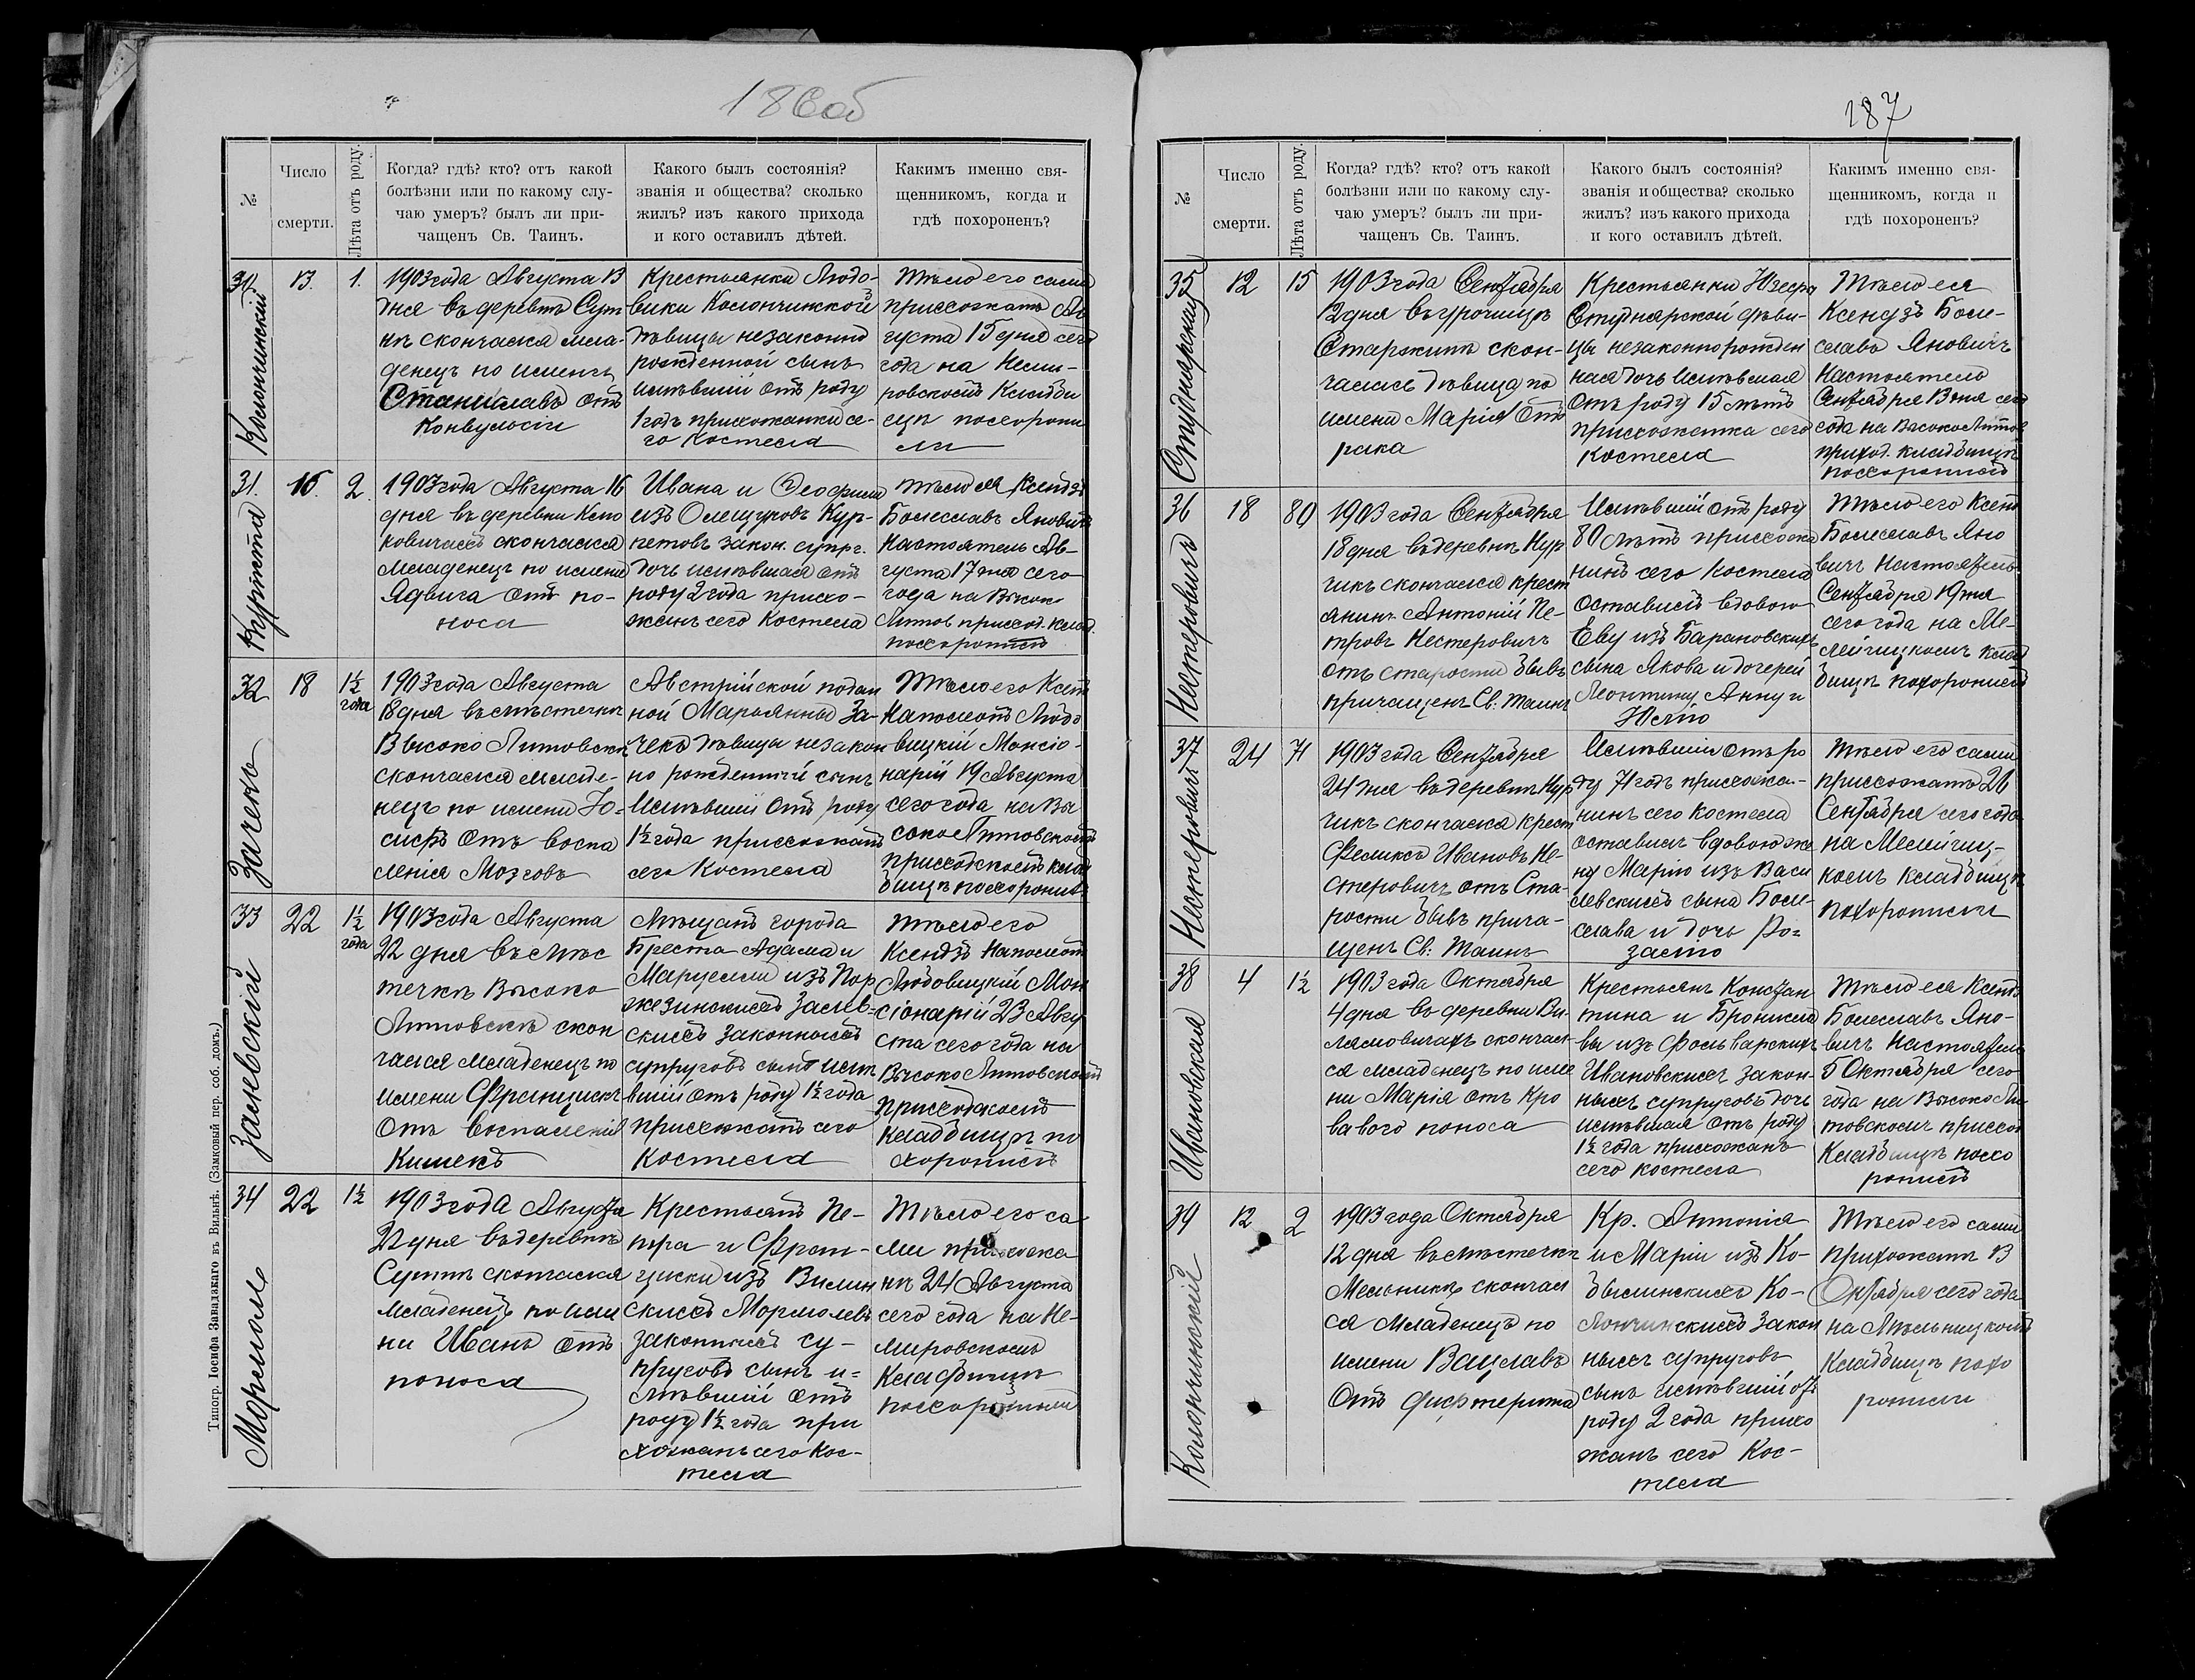 186 об
№
Число
смерти.
Лѣта отъ роду.
Когда? гдѣ? кто? отъ какой
болѣзни или по какому слу-
чаю умеръ? былъ ли при-
чащенъ Св. Таинъ.
Какого былъ состоянія?
званія и общества? сколько
жилъ? изъ какого прихода
и кого оставилъ дѣтей.
Каким именно свя-
щенникомъ, когда и
гдѣ похороненъ?
13. 1.
1903 года Августа 13
дня въ деревнѣ Сут
нѣ скончался мла-
денецъ по имени
Станиславъ отъ
Конвульсіи
Крестьянки Людо-
вики Колончинской
дѣвицы незаконно
рожденный сынъ
имѣвшій отъ роду
1 годъ прихожанки се-
го Костела
Тѣло его сами
прихожане Ав
густа 15 дня сего
года на Неми-
ровскомъ Кладби
щѣ похорони
ли
31. 16. 2.
1903 года Августа 16
дня въ деревни Кло
ковичахъ скончался
младенецъ по имени
Ядвига отъ по-
носа
Ивана и Теофили
изъ Олещуковъ Кур-
петовъ закон. супр.
дочь имѣвшая отъ
роду 2 года прихо-
жанъ сего Костела
Тѣло ея Ксендзъ
Болеславъ Яновичъ
Настоятель Ав-
густа 17 дня сего
года на Высок
Литов приход. клад.
похоронилъ
32 18 1½ года
Зачекъ
1903 года Августа
18 дня въ мѣстечкѣ
Высоко Литовскѣ
скончался младе-
нецъ по имени Іо-
сифъ отъ воспа
ленія Мозговъ
Австрійской поддан
ной Марьянны За-
чекъ дѣвицы незакон
но рожденный сынъ
Имѣвшій отъ роду
1½ года прихожанъ
сего Костела
Тѣло его Ксен
Наполеонъ Людо
вицкій Мансіо-
нарій 19 Августа
сего года на Вы
соко Литовскомъ
приходскомъ клад
бищѣ похоронилъ
33 22 1½ года
Залевскій
1903 года Августа
22 дня въ мѣс
течкѣ Высоко
Литовскѣ скон
чался младенецъ по
имени Францискъ
Отъ воспаленія
Кишекъ
Мѣщанъ города
Бреста Адама и
Марцелли изъ Пор
жезинскихъ Залев-
скихъ законныхъ
супруговъ сынъ имѣ
вшій отъ роду 1½ года
прихожанъ сего
Костела
Тѣло его
Ксендзъ Наполеонъ
Людовицкій Ман
сіонарій 23 Авгу
ста сего года на
Высоко Литовскомъ
приходскомъ
кладбищѣ по
хоронилъ
34 22 1½
1903 года Августа
22 дня въ деревнѣ
Сутнѣ скончался
младенецъ по име
ни Иванъ отъ
поноса
Крестьянъ Пе-
тра и Фран-
циски изъ Вилин
скихъ
законныхъ су-
пруговъ сынъ и-
мѣвшій отъ
роду 1½ года при
хожанъ сего Кос-
тела
Тѣло его са
ми прихожа
нѣ 24 Августа
сего года на Не-
мировскомъ
Кладбищѣ
похоронили
Типогр. Іосифа Завадзкаго въ Вильнѣ. (Замковый пер. соб. домъ.)
187
№
Число
смерти.
Лѣта отъ роду.
Когда? гдѣ? кто? отъ какой
болѣзни или по какому слу-
чаю умеръ? былъ ли при-
чащенъ Св. Таинъ.
Какого былъ состоянія?
званія и общества? сколько
жилъ? изъ какого прихода
и кого оставилъ дѣтей.
Каким именно свя-
щенникомъ, когда и
гдѣ похороненъ?
35 12 15
Студнярская
1903 года Сентября
12 дня въ урочищѣ
скон-
чалась дѣвица по
имени Марія Отъ
рака
Крестьянки Юзефы
Студнярской дѣви-
цы незаконнорожден
ная дочь имѣвшая
Отъ роду 15 лѣтъ
прихожанка сего
Костела
Тѣло ея
Ксендзъ Боле-
славъ Яновичъ
Настоятель
Сентября 13 дня сего
года на Высоко Литов
приход. кладбищѣ
похоронилъ
36 18 80
Нестеровичъ
1903 года Сентября
18 дня въ деревнѣ
скончался крест
янинъ Антоній Пе-
тровъ Нестеровичъ
Отъ старости бывъ
причащенъ Св: Таинъ
Имѣвшій отъ роду
80 лѣтъ прихожа
нинъ сего Костела
Оставилъ вдовою
Еву изъ Барановскихъ
сына Якова и дочерей
Леонтину Анну и
Юлію
Тѣло его Ксенд
Болеславъ Яно
вичъ Настоятель
Сентября 19 дня
сего года на Ме-
лейчицкомъ клад
бищѣ похоронилъ
37 24 71
Нестеровичъ
1903 года Сентября
24 дня въ деревнѣ
скончался крест
Феликсъ Ивановъ Не-
стеровичъ отъ Ста-
рости бывъ прича-
щенъ Св: Таинъ
Имѣвшій отъ ро
ду 71 годъ прихожа-
нинъ сего Костела
оставилъ вдовою же
ну Марію изъ Васи
левскихъ сына Боле-
слава и дочь Ро-
залію
Тѣло его сами
прихожане 26
Сентября сего года
на Мелейчиц-
комъ кладбищѣ
похоронили
38 4 1½
Ивановская
1903 года Октября
4 дня въ деревни Ви-
лямовичахъ скончал-
ся младенецъ по име
ни Марія отъ кро
ваваго поноса
Крестьянъ Констан
тина и Бронисла
вы изъ Фольварскихъ
Ивановскихъ закон-
ныхъ супруговъ дочь
имѣвшая отъ роду
1½ года прихожанъ
сего костела
Тѣло ея Ксендз
Болеславъ Яно-
вичъ Настоятель
5 Октября сего
года на Высоко Ли
товскомъ приход
Кладбищѣ похо
ронилъ
39 12 2
Колончинскій
1903 года Октября
12 дня въ мѣстечкѣ
Мельникѣ скончал
ся младенецъ по
имени Вацлавъ
Отъ дифтерита
Кр. Антонія
и Маріи изъ Ко-
былинскихъ Ко-
лончинскихъ закон
ныхъ супруговъ
сынъ имѣвшій отъ
роду 2 года прихо
жанъ сего Кос-
тела
Тѣло его сами
прихожане 13
Октября сего года
на Мѣльницкомъ
Кладбищѣ похо
ронили